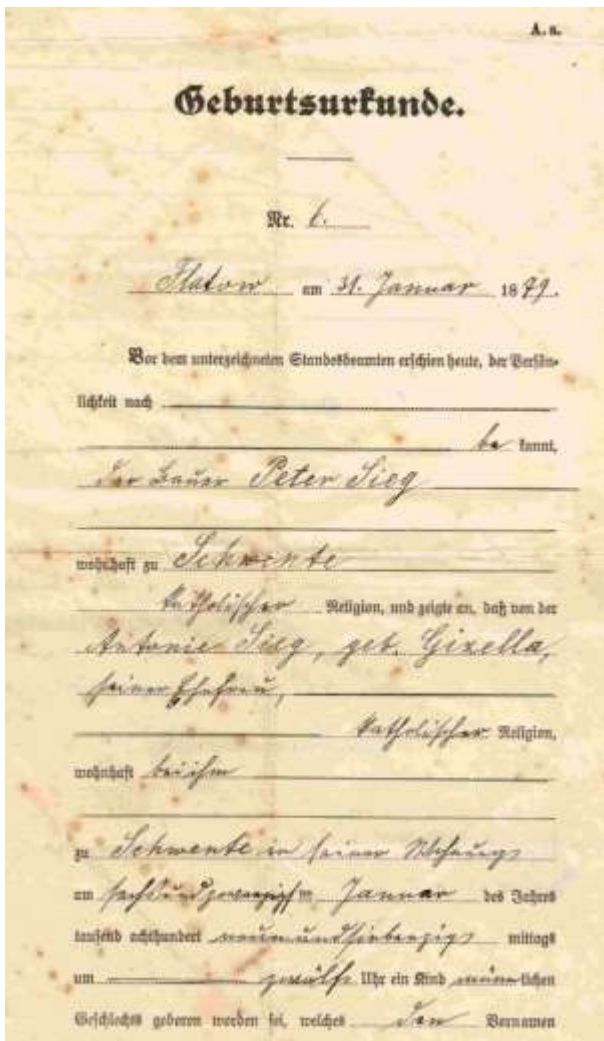 A. a.
Geburtsurkunde.
Nr. 6.
Flatow am 31. Januar 1879.
Vor dem unterzeichneten Standesbeamten erschien heute, der Persön-
lichkeit nach
be kannt,
der Bauer Peter Sieg
wohnhaft zu Schwente
katholischer Religion, und zeigte an, daß von der
Antonie Sieg, geb. Gixella,
seiner Ehefrau,
katholischer Religion,
wohnhaft bei ihm
zu Schwente in seiner Wohnung
am sechsundzwanzigsten Januar des Jahres
tausend achthundert neunundsiebenzig mittags
um zwölf Uhr ein Kind männlichen
Geschlechts geboren worden sei, welches den Vornamen